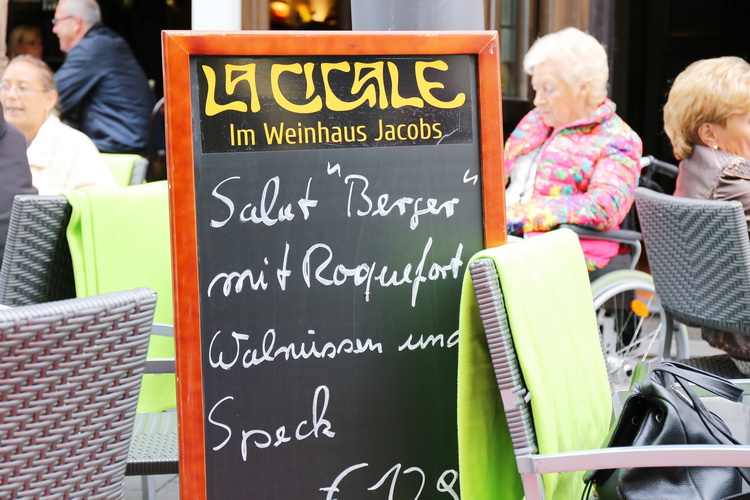 LA CIGALE
Im Weinhaus Jacobs
Salat "Berger"
mit Roquefort
Walnüssen und
Speck